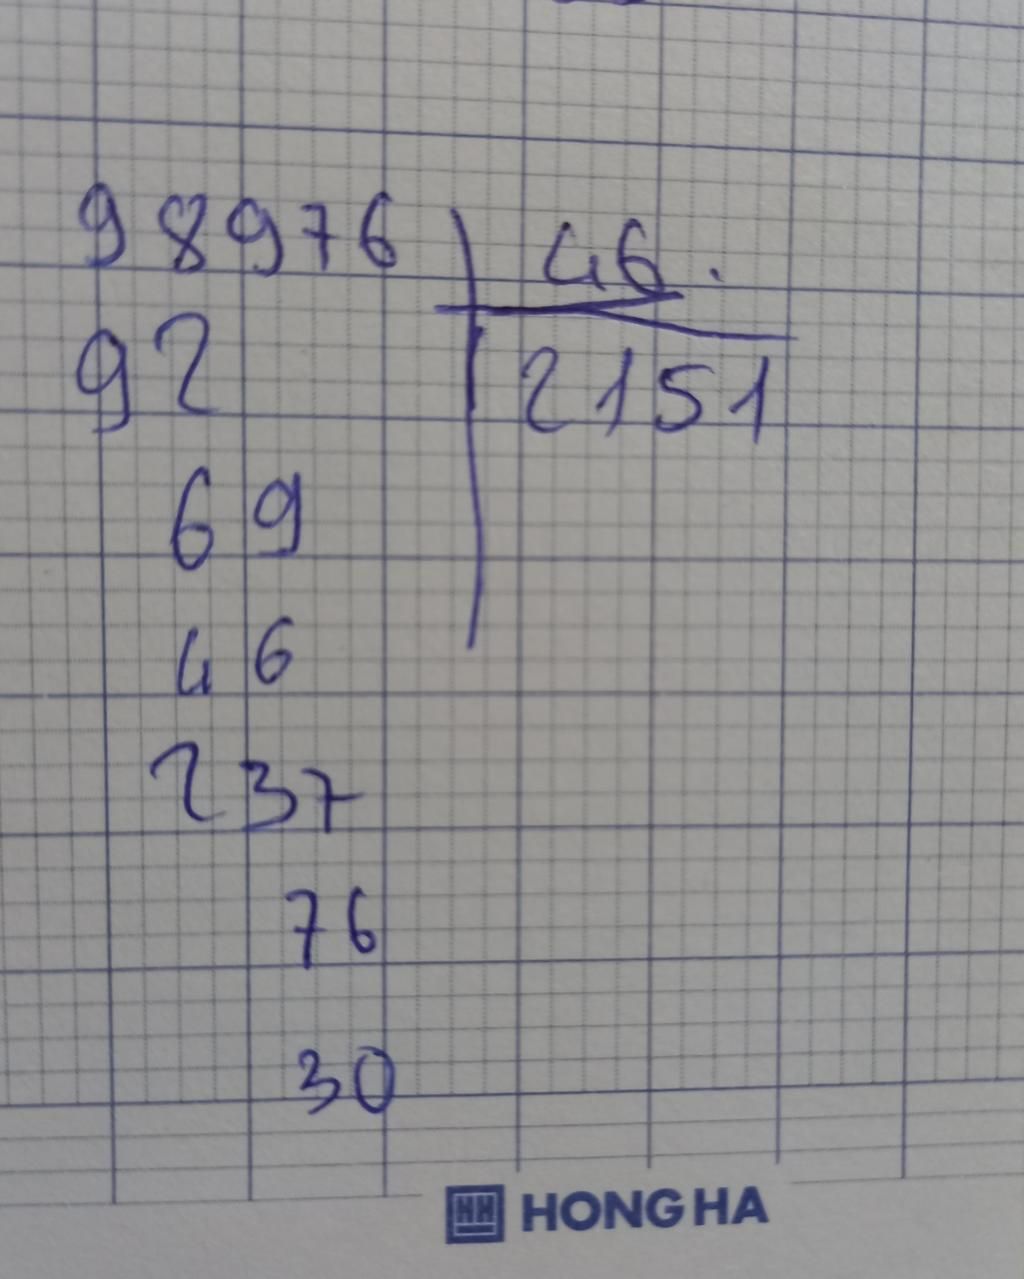 98976 46.
92 2151
69
46
237
76
30
HONG HA